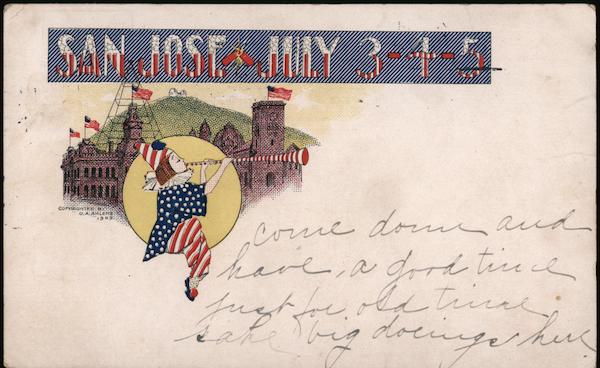 SAN JOSE JULY 3-4-5
COPYRIGHTED BY
O.A. AHLERS
come down and
have, a good time
just for old time
sake big doeings here